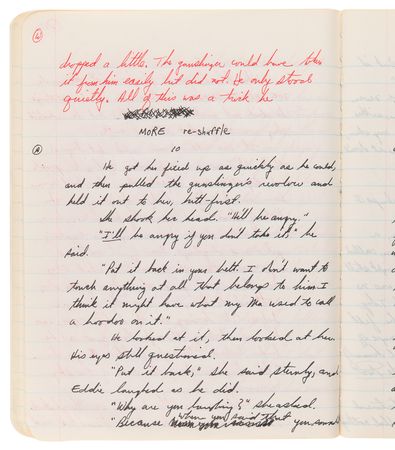 (6)
dropped a little. The gunslinger could have taken
it from him easily but did not. He only stood
quietly. All of this was a trick he
MORE re-shuffle
10
(A)
He got her fixed up as quickly as he could,
and then pulled the gunslinger's revolver and
held it out to her, butt-first.
She shook her head. "He'll be angry."
"I'll be angry if you don't take it," he
said.
"Put it back in your belt. I don't want to
touch anything at all that belongs to him. I
think it might have what my Ma used to call
a hoodoo on it."
He looked at it, then looked at her.
His eyes still questioned.
"Put it back," she said sternly, and
Eddie laughed as he did.
"Why are you laughing?" she asked.
when you said that
"Because you sound